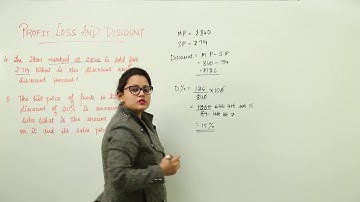 PROFIT LOSS AND DISCOUNT
4. An Item marked at ₹840 is sold for
₹714 What is the discount and
discount percent?
5. The list price of frock is
discount of 20% is
sales What is the amount
on it and its sale
MP = ₹840
SP = ₹714
Discount = MP - SP
= 840 - 714
= ₹126
D% = 126/840 × 100
= 15%